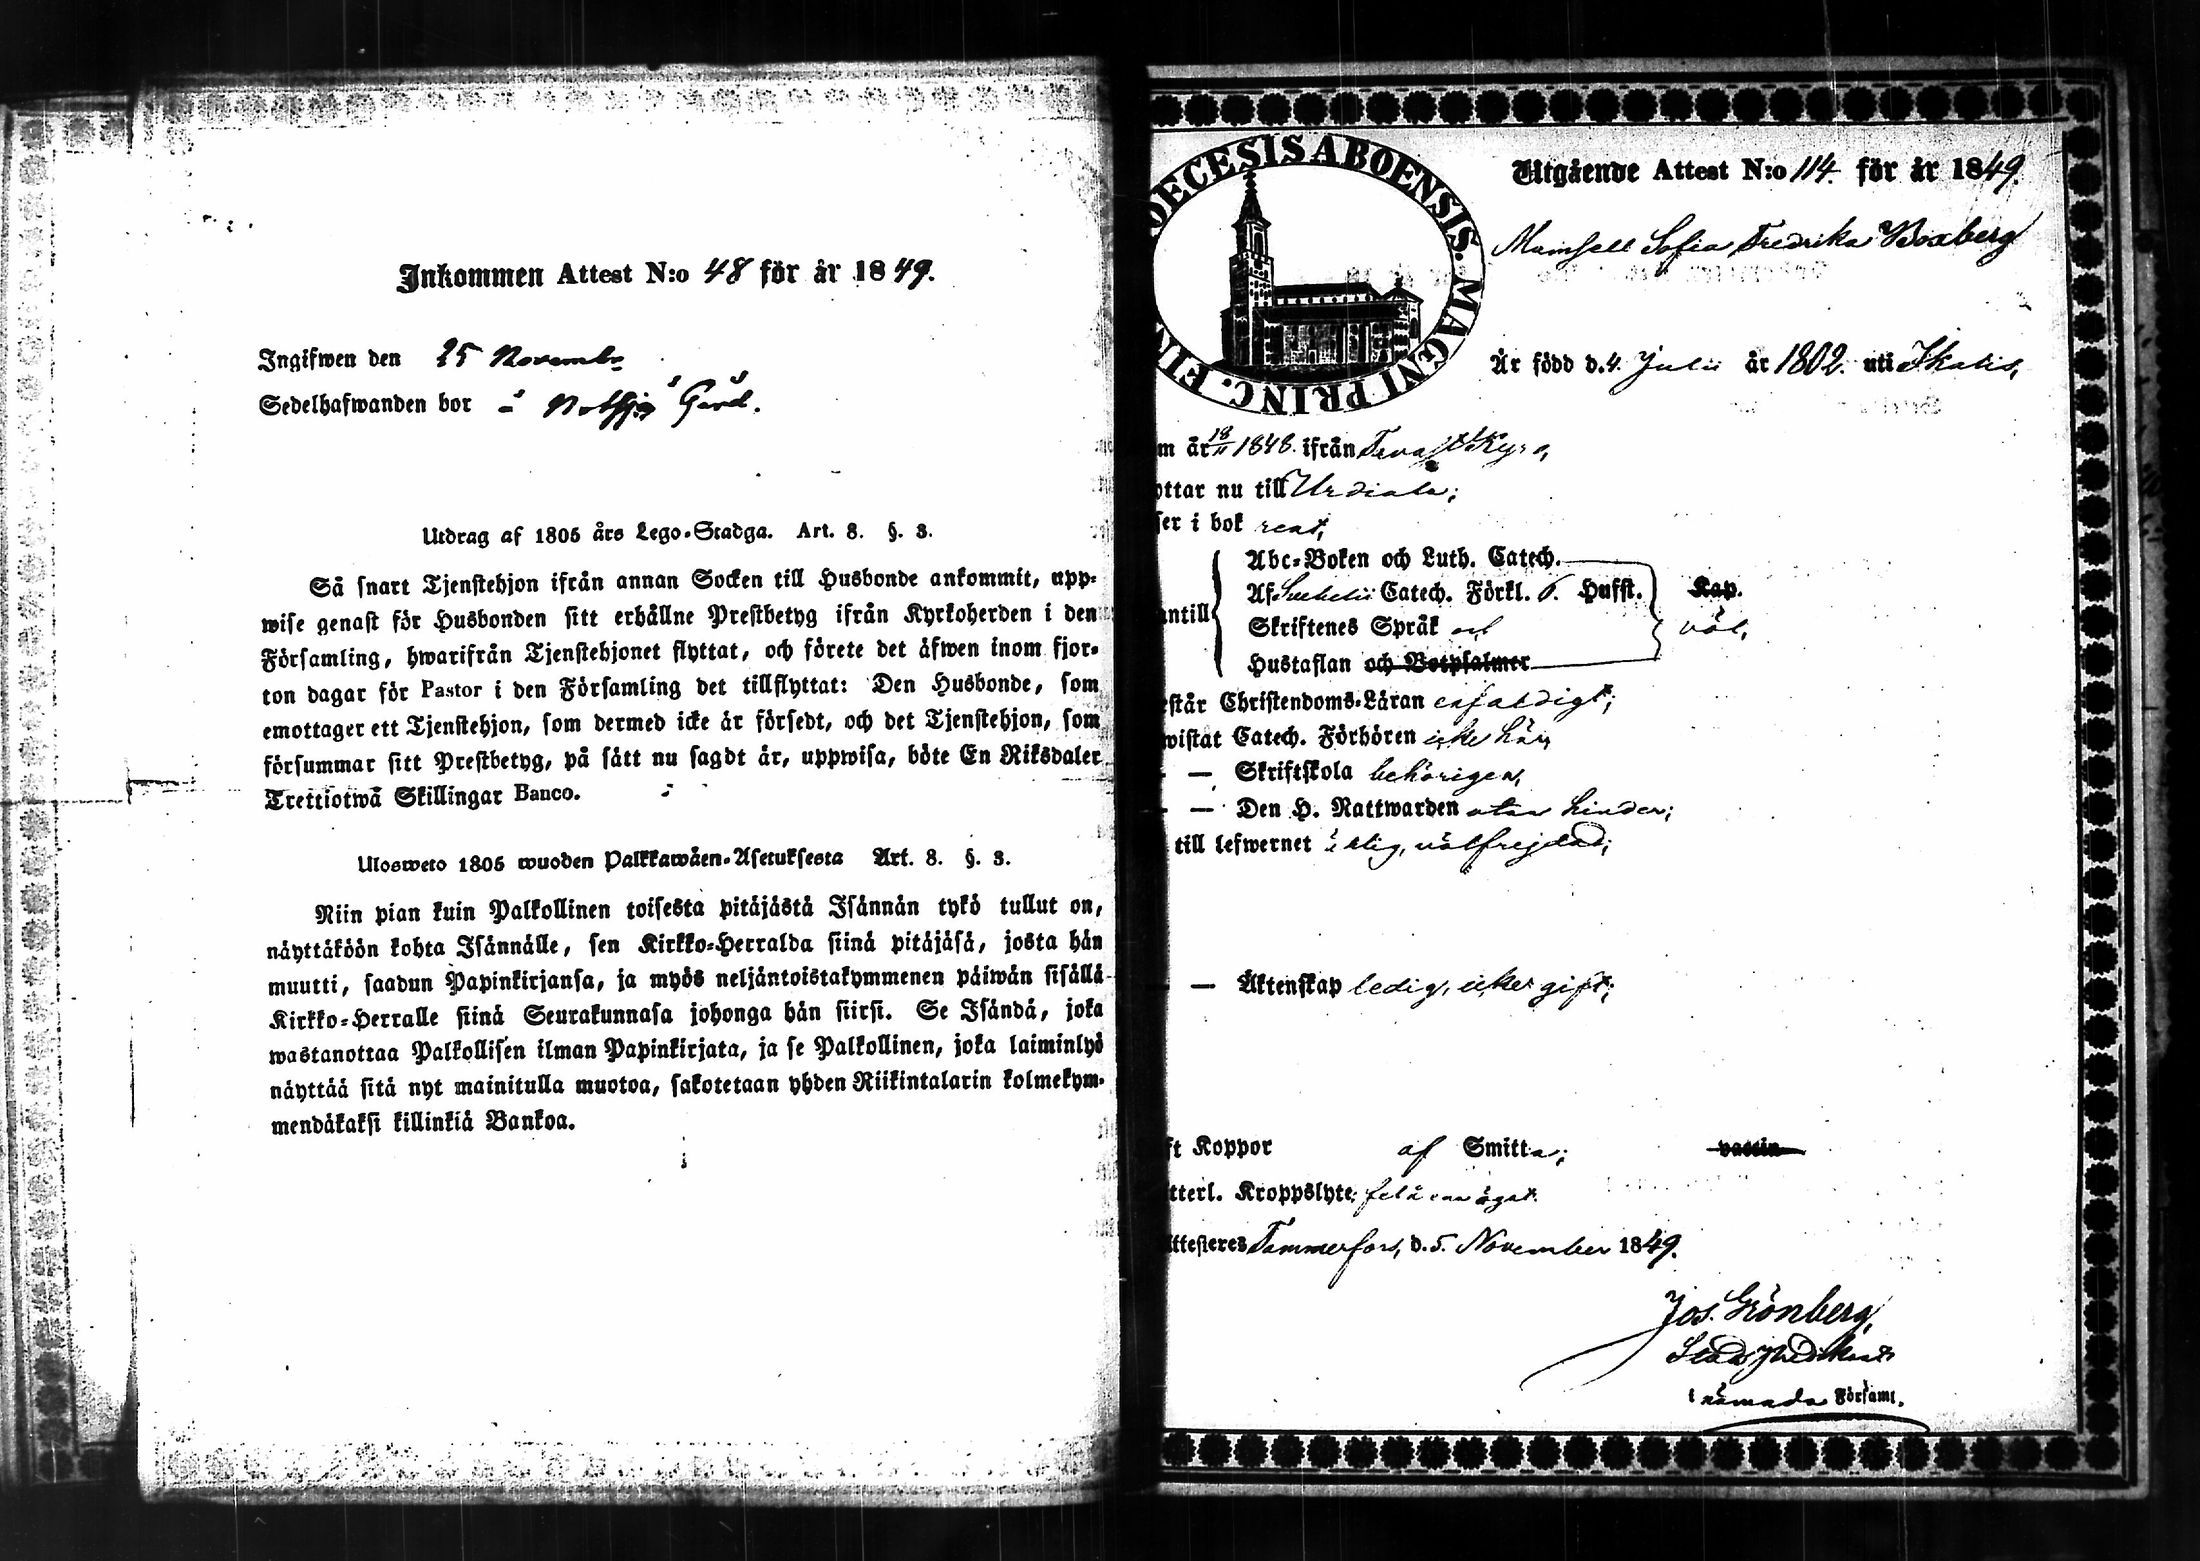 Inkommen Attest N:o 48 för år 1849.
Ingifwen den 25 Novembr
Sedelhafwanden bor å Gård.
Utdrag af 1805 års Lego-Stadga. Art. 8. §. 3.
Så snart Tjenstehjon ifrån annan Socken till Husbonde ankommit, upp-
wise genast för Husbonden sitt erhållne Prestbetyg ifrån Kyrkoherden i den
Församling, hwarifrån Tjenstehjonet flyttat, och förete det äfwen inom fjor-
ton dagar för Pastor i den Församling det tillflyttat: Den Husbonde, som
emottager ett Tjenstehjon, som dermed icke är försedt, och det Tjenstehjon, som
försummar sitt Prestbetyg, på sätt nu sagdt är, uppwisa, böte En Riksdaler
Trettiotwå Skillingar Banco.
Ulosweto 1805 wuoden Palkkawäen-Asetuksesta Art. 8. §. 3.
Niin pian kuin Palkollinen toisesta pitäjästä Isännän tykö tullut on,
näyttäköön kohta Isännälle, sen Kirkko-Herralda siinä pitäjäsä, josta hän
muutti, saadun Papinkirjansa, ja myös neljäntoistakymmenen päiwän sisällä
Kirkko-Herralle siinä Seurakunnasa johonga hän siirsi. Se Isändä, joka
wastanottaa Palkollisen ilman Papinkirjata, ja se Palkollinen, joka laiminlyö
näyttää sitä nyt mainitulla muotoa, sakotetaan yhden Riikintalarin kolmekym-
mendäkaksi killinkiä Bankoa.
OECESIS ABOENSIS. MAGNI PRINC. FIN
Utgående Attest N:o 114. för år 1849.
Mamsell Sofia Fredrika Boxberg
Är född d. 4. Julii år 1802. uti Ikalis,
m år 18/11 1848. ifrån Tavastkyro,
yttar nu till Urdiala;
ser i bok rent,
antill
Abc-Boken och Luth. Catech.
Af Svebelii Catech. Förkl. o. Hufst. Kap.
Skriftenes Språk och väl,
Hustaflan och Botpsalmer
står Christendoms-Läran enfaldigt;
wistat Catech. Förhören icke här,
— Skriftskola behörigen,
— Den H. Nattwarden utan hinder;
till lefwernet ärlig, välfrejdad;
— Äktenskap ledig, icke gift;
ft Koppor af Smitta; vaccin
tterl. Kroppslyte: fel å ena ögat.
ttesteres Tammerfors, d. 5. November 1849.
Jos. Grönberg,
Stadspredikant
i nämnda Församl.